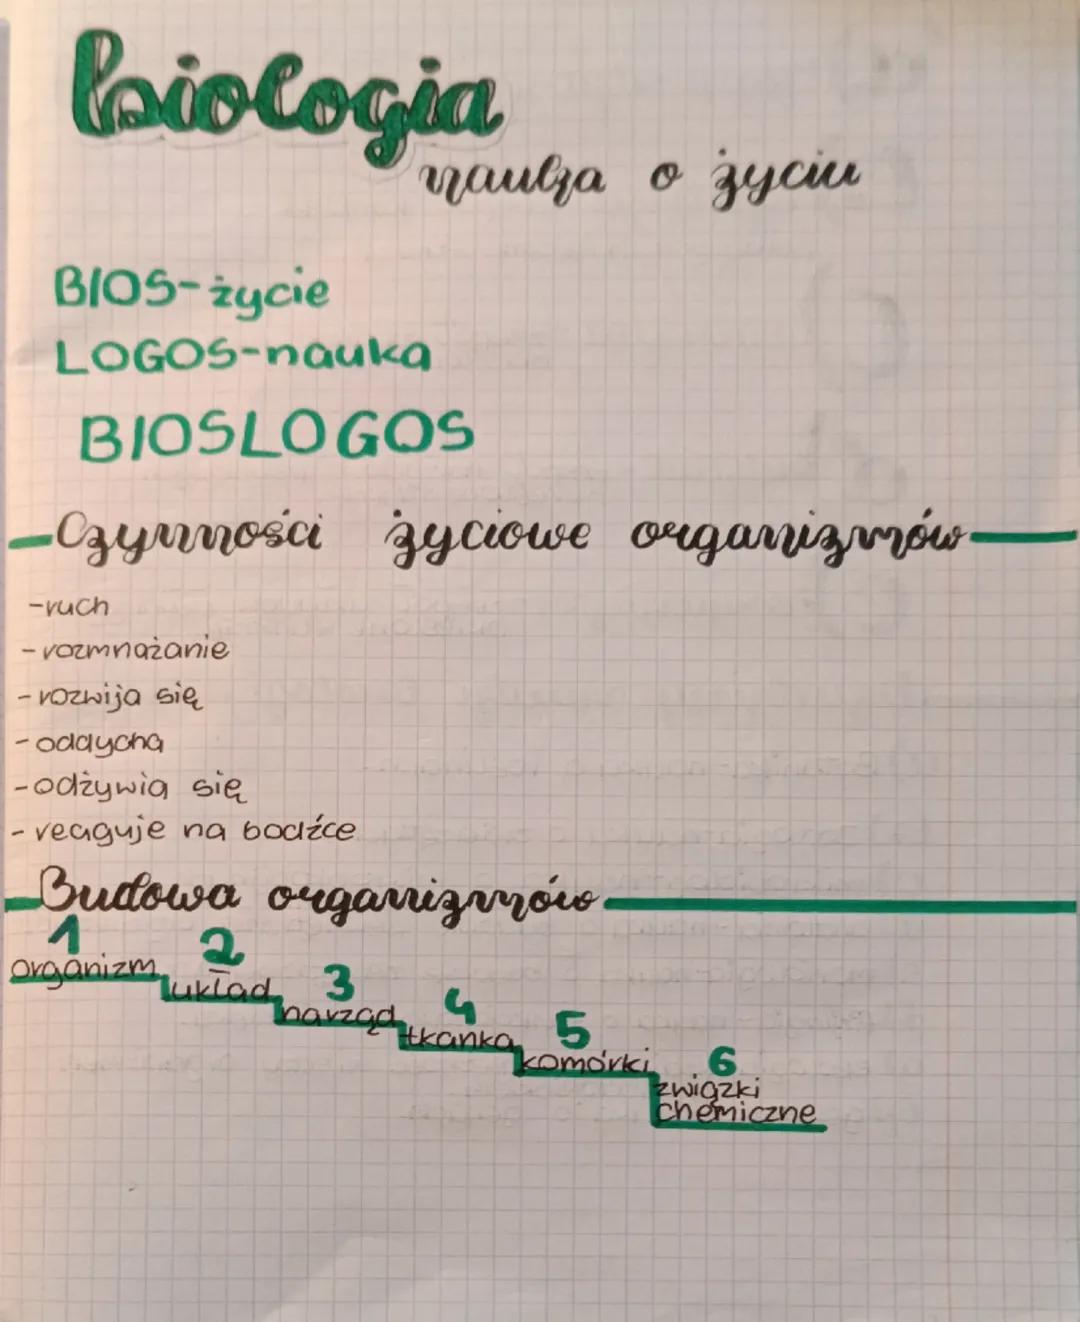 biologia
nauka o życiu
BIOS-życie
LOGOS-nauka
BIOSLOGOS
Czynności życiowe organizmów
-ruch
-rozmnażanie
-rozwija się
-oddycha
-odżywia się
-reaguje na bodźce
Budowa organizmów
1 organizm
2 układ
3 narząd
4 tkanka
5 komórki
6 związki
chemiczne